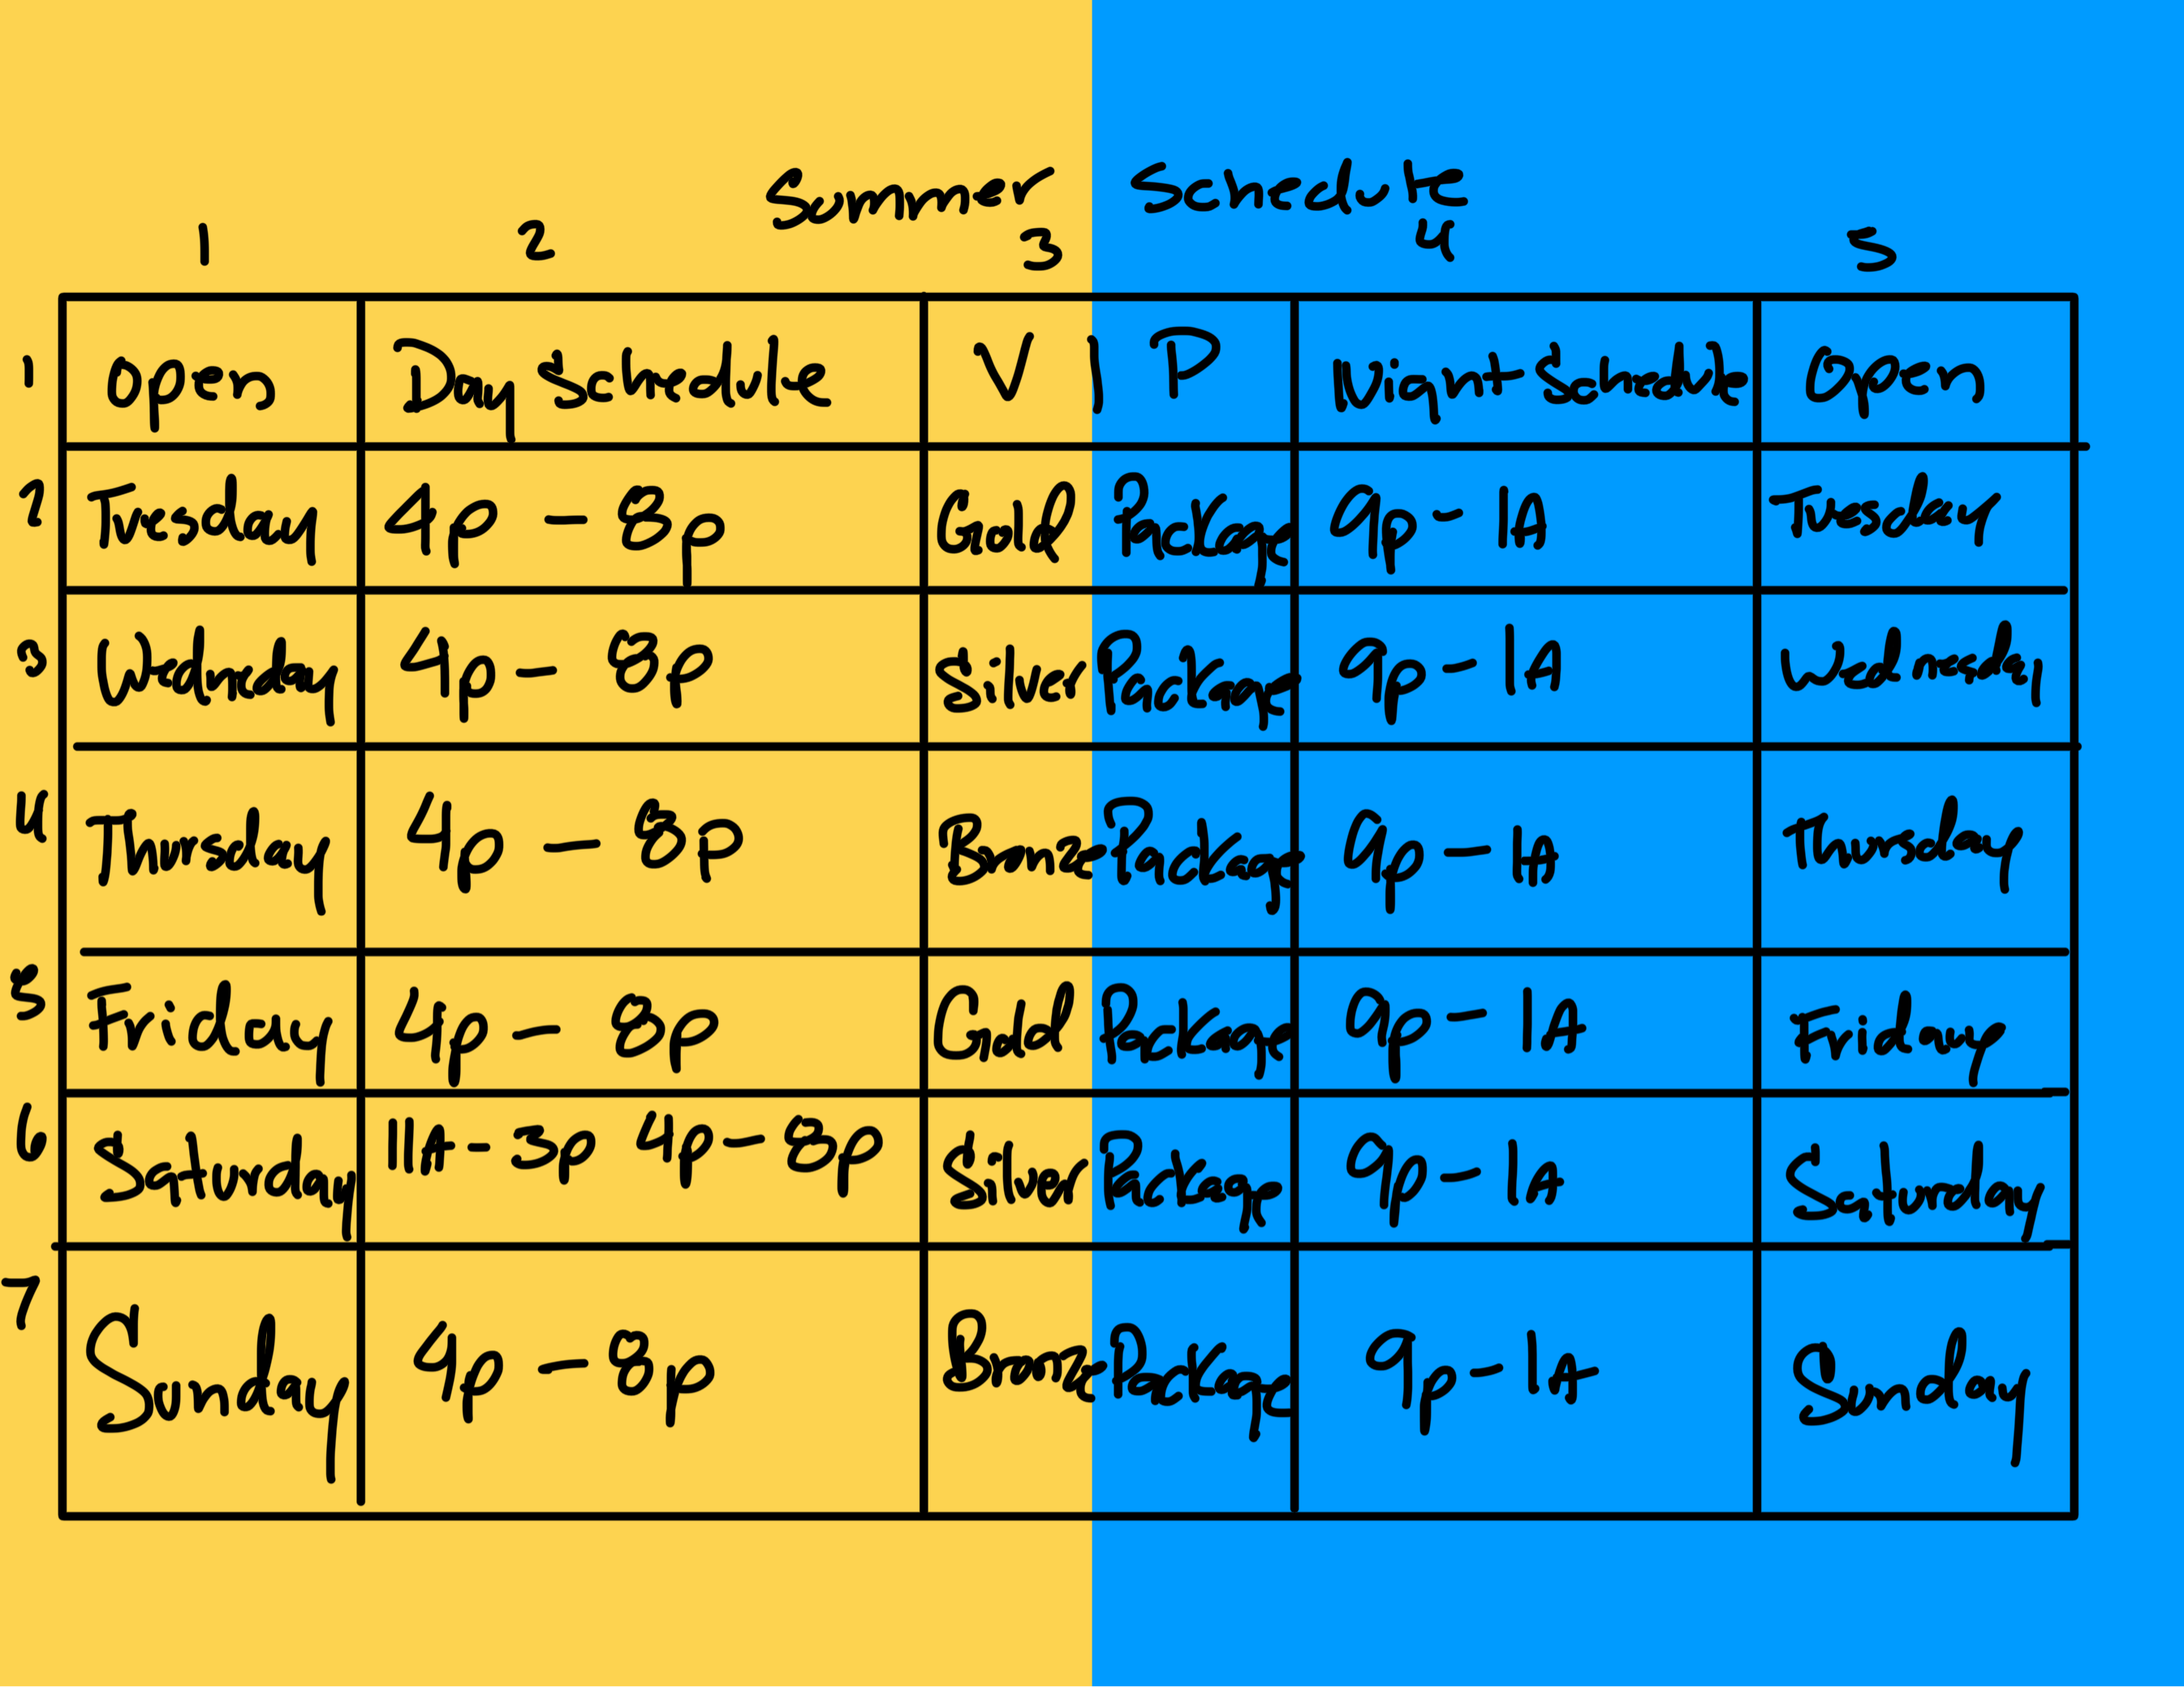 Summer Schedule
1 2 3 4 5
1 Open Day Schedule V I P Night Schedule Open
2 Tuesday 4p - 8p Gold Package 9p - 1A Tuesday
3 Wednesday 4p - 8p Silver Package 9p - 1A Wednesday
4 Thursday 4p - 8p Bronze Package 9p - 1A Thursday
5 Friday 4p - 8p Gold Package 9p - 1A Friday
6 Saturday 11A - 3p 4p - 8p Silver Package 9p - 1A Saturday
7 Sunday 4p - 8p Bronze Package 9p - 1A Sunday